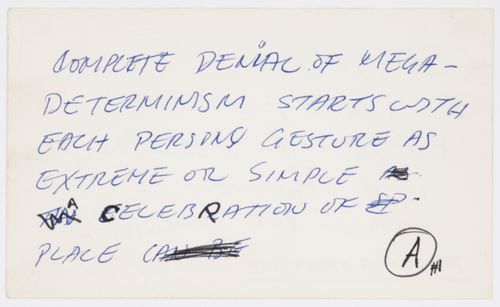 COMPLETE DENIAL OF MEGA-
DETERMINISM STARTS WITH
EACH PERSONS GESTURE AS
EXTREME OR SIMPLE
A CELEBRATION OF
PLACE CAN BE
A #1